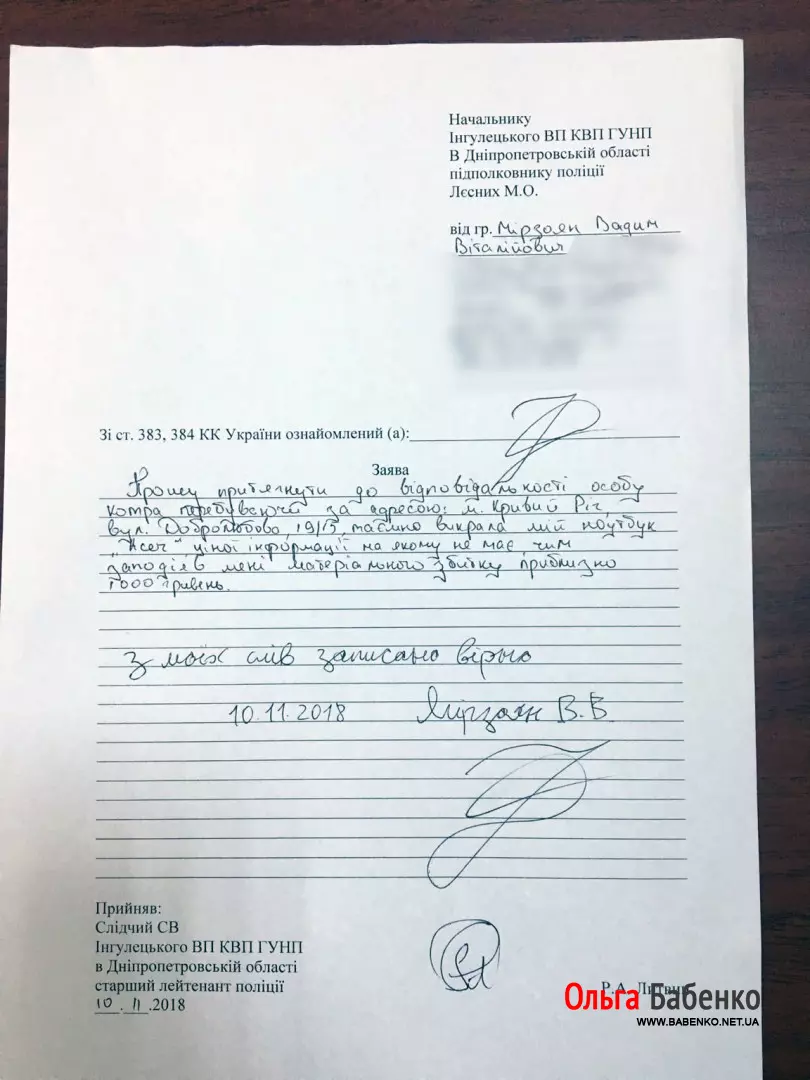 Начальнику
Інгулецького ВП КВП ГУНП
В Дніпропетровській області
підполковнику поліції
Лєсних М.О.
від гр. Мірзоян Вадим
Віталійович
Зі ст. 383, 384 КК України ознайомлений (а):
Заява
Прошу притягнути до відповідальності особу
котра перебуваючи за адресою: м. Кривий Ріг,
вул. Добролюбова, 19/5, таємно викрала мій ноутбук
цінної інформації на якому не має, чим
заподіяв мені матеріального збитку приблизно
7000 гривень.
З моїх слів записано вірно
10.11.2018 Мірзоян В.В
Прийняв:
Слідчий СВ
Інгулецького ВП КВП ГУНП
в Дніпропетровській області
старший лейтенант поліції
10.11.2018
Р.А.
Ольга Бабенко
WWW.BABENKO.NET.UA